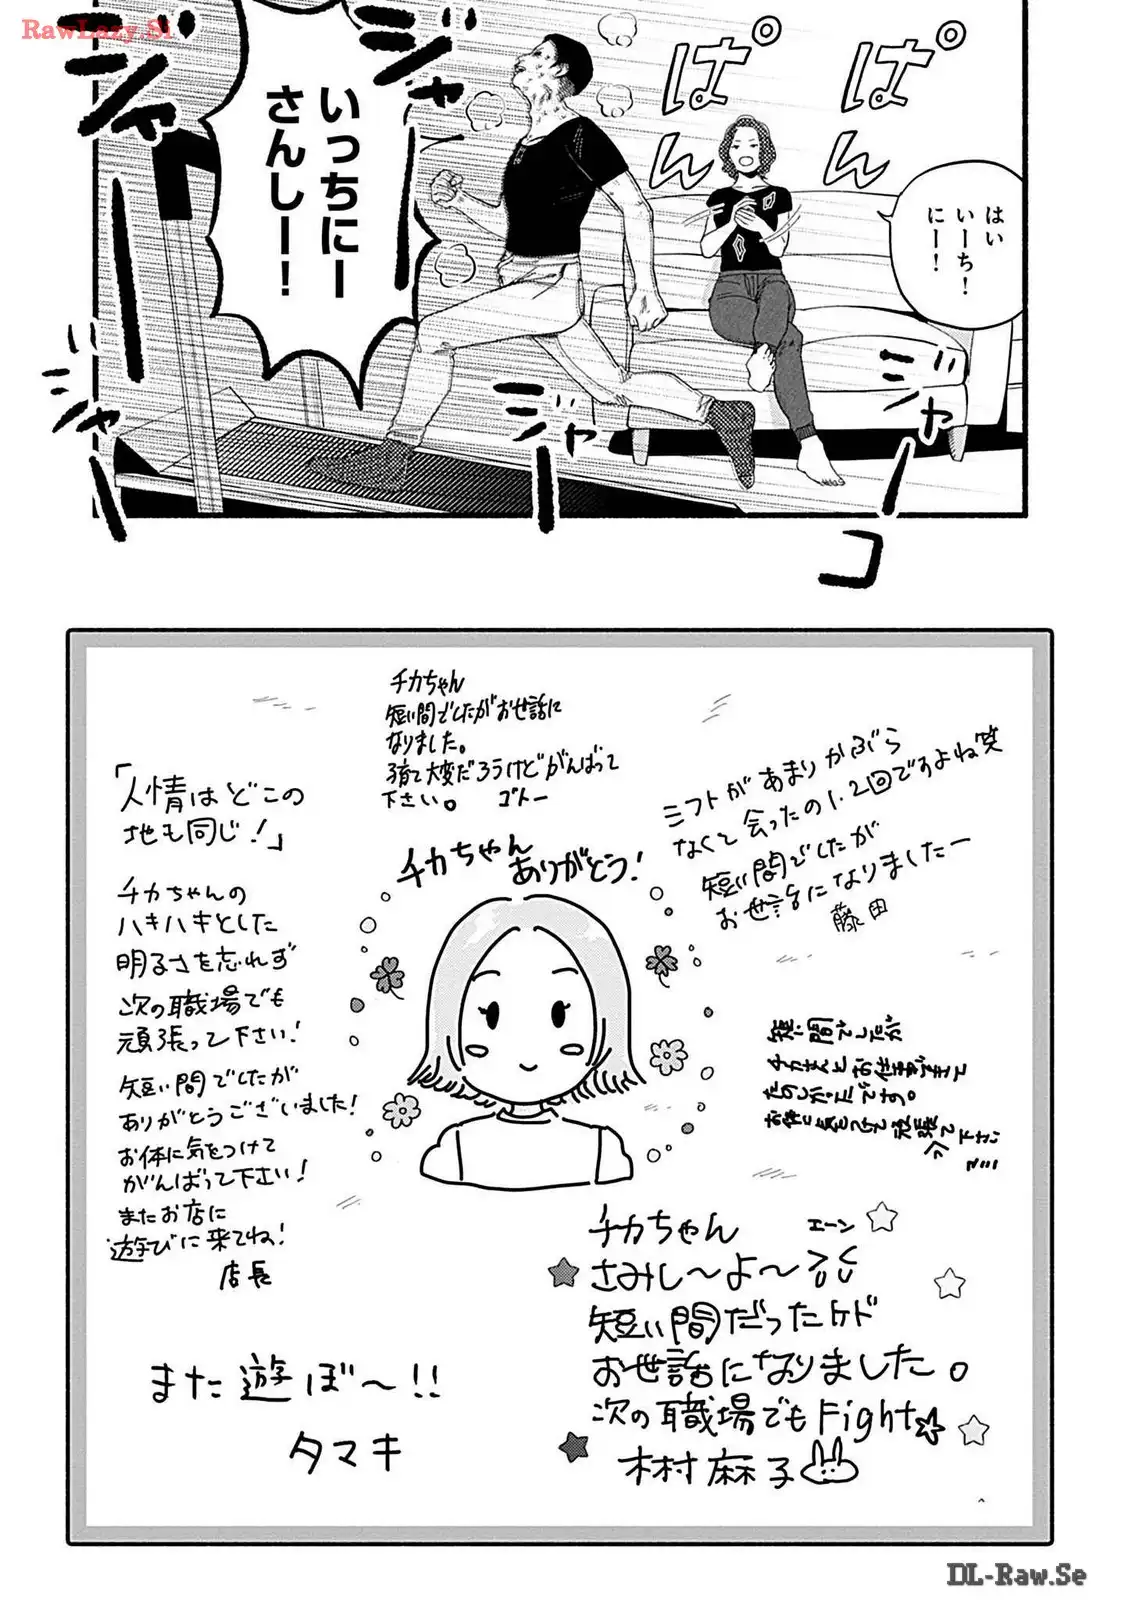 RawLazy.Si
はい
いーち!
にー!
ぱん
ぱん
いっちにー
さんしー!
ジャ
ジャ
ジャコ
チカちゃん
短い間でしたがお世話に
なりました。
子育て大変だろうけどがんばって
下さい。 ゴトー
シフトがあまりかぶら
なくて会ったの1.2回ですよね笑
短い間でしたが
お世話になりましたー
藤田
「人情はどこの
地も同じ!」
チカちゃんの
ハキハキとした
明るさを忘れず
次の職場でも
頑張って下さい!
短い間でしたが
ありがとうございました!
お体に気をつけて
がんばって下さい!
またお店に
遊びに来てね!
店長
チカちゃん
ありがとう!
短い間でしたが
チカさんとお仕事できて
たのしかったです。
お体に気をつけて頑張って下さい
チカちゃん エーン
さみし〜よ〜
短い間だったケド
お世話になりました。
次の職場でもFight☆
木村麻子
また遊ぼ〜!!
タマキ
DL-Raw.Se